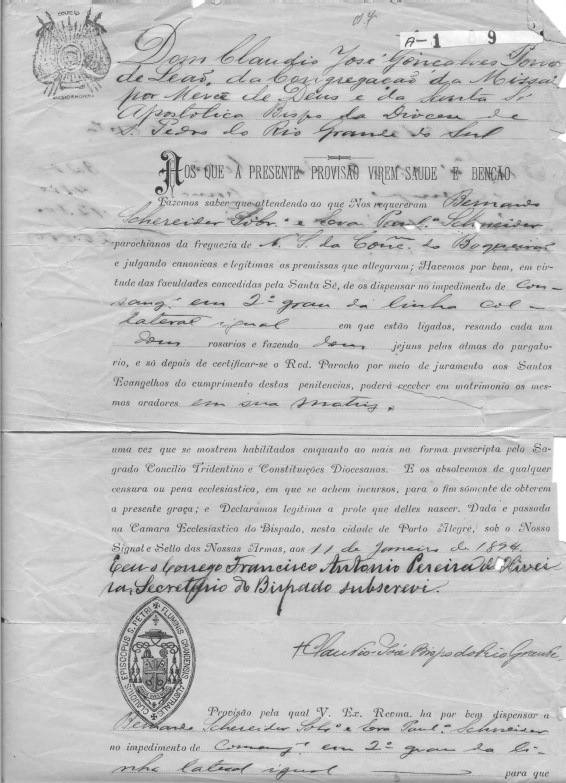 COLEGIO
A-1 9
Dom Claudio José Gonçalves Ponce
de Leão, da Congregação da Missão
por Mercê de Deus e da Santa Sé
Apostolica Bispo da Diocese de
S. Pedro do Rio Grande do Sul
AOS QUE A PRESENTE PROVISÃO VIREM SAUDE E BENÇÃO
Fazemos saber que attendendo ao que Nos requereram Bernardo
Schereider Sobr.º e Eva Paul.ª Schneider
parochianos da freguezia de N. S. da Conc. do Boqueirão
e julgando canonicas e legitimas as premissas que allegaram; Havemos por bem, em vir-
tude das faculdades concedidas pela Santa Sé, de os dispensar no impedimento de Con-
sang. em 2º grau da linha col-
lateral igual em que estão ligados, resando cada um
dous rosarios e fazendo dous jejuns pelas almas do purgato-
rio, e só depois de certificar-se o Rvd. Parocho por meio de juramento aos Santos
Evangelhos do cumprimento destas penitencias, poderá receber em matrimonio os mes-
mos oradores em sua matriz,
uma vez que se mostrem habilitados emquanto ao mais na forma prescripta pelo Sa-
grado Concilio Tridentino e Constituições Diocesanas. E os absolvemos de qualquer
censura ou pena ecclesiastica, em que se achem incursos, para o fim sómente de obterem
a presente graça; e Declaramos legitima a prole que delles nascer. Dada e passada
na Camara Ecclesiastica do Bispado, nesta cidade de Porto Alegre, sob o Nosso
Signal e Sello das Nossas Armas, aos 11 de Janeiro de 1894.
Eeu o Conego Francisco Antonio Pereira de Olivei
ra, Secretario do Bispado subscrevi.
CLAUDIUS EPISCOPUS S. PETRI FLUMINIS GRANDENSIS AUSTRALIS
† Claudio José Bispo do Rio Grande.
Provisão pela qual V. Ex. Revma. ha por bem dispensar a
Bernardo Schereider Sobr.º e Eva Paul.ª Schneider
no impedimento de Consang. em 2º grau da li-
nha lateral igual para que